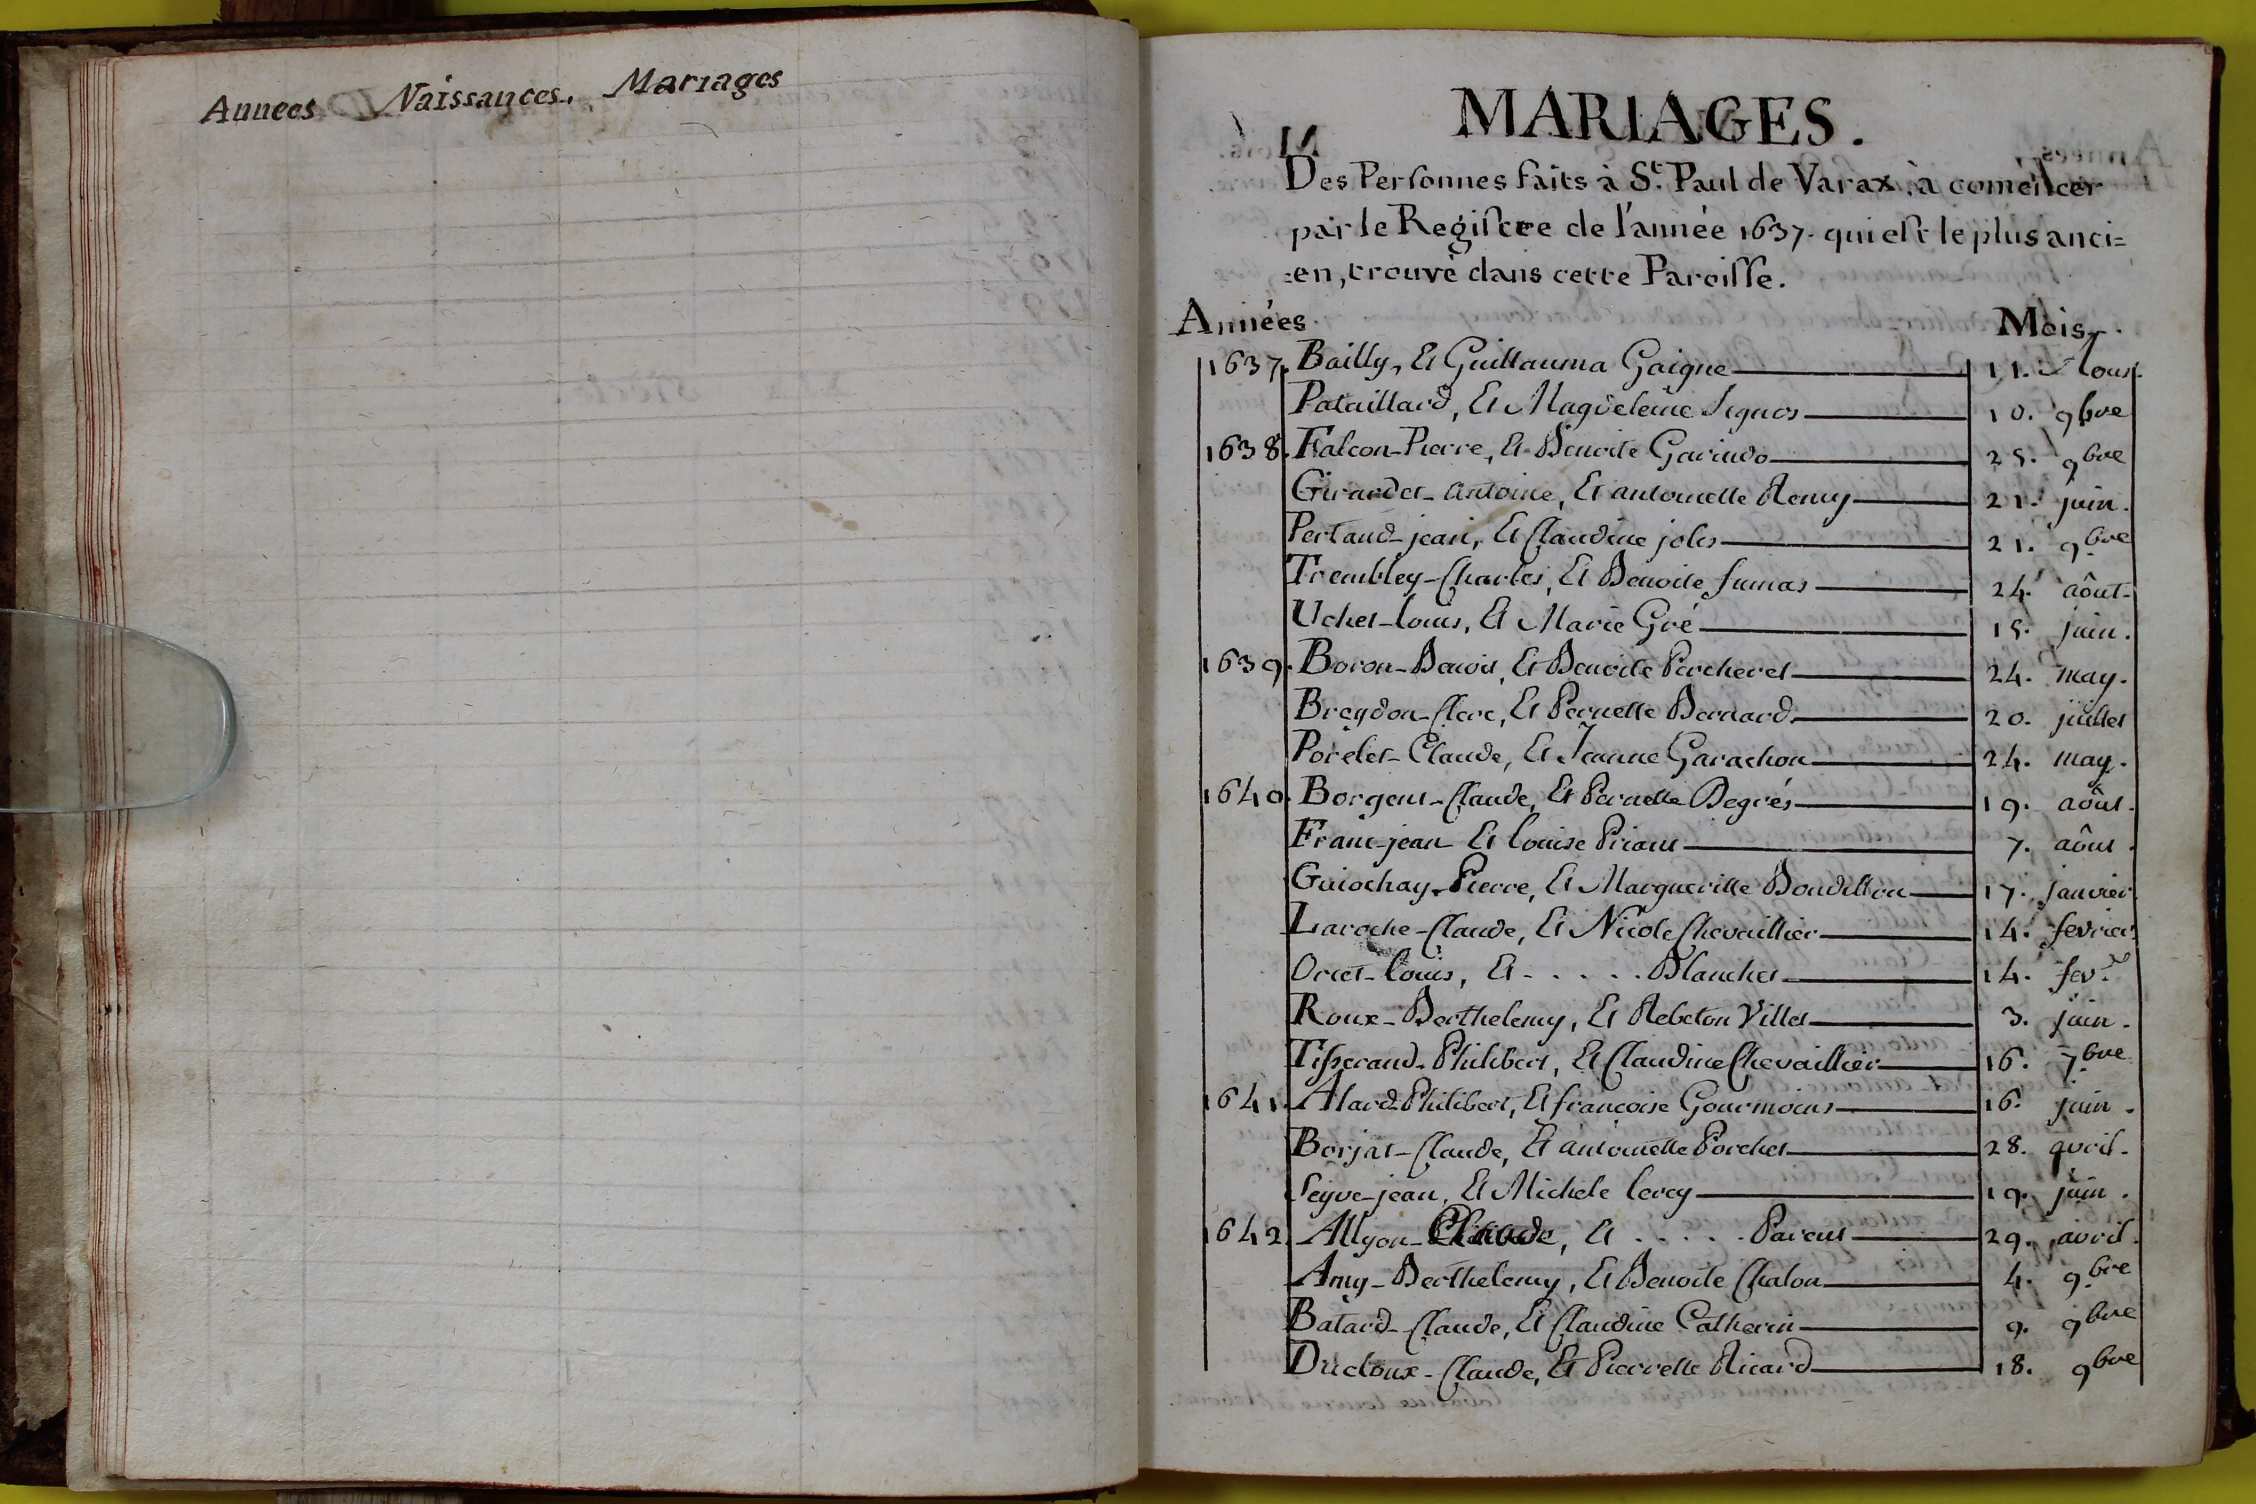 Annees Naissances. Mariages
MARIAGES.
Des Personnes faits à St. Paul de Varax, à comencer
par le Registre de l'année 1637. qui est le plus anci=
=en, trouvé dans cette Paroisse.
Années. Mois.
1637. Bailly, Et Guillauma Gaigne 11.
Pataillard, Et Magdeleine 10. 9bre
1638. Falcon-Pierre, Et Benoite 25. 9bre
Girardet-antoine, Et antoinette Remy 21. juin.
Pertaud-jean, Et Claudine 21. 9bre
Trembley-Charles, Et Benoite fumas 24. aôut.
Uchet-louis, Et Marie Gré 15. juin.
1639. Boron-Benoit, Et Benoite Percheret 24. may.
Breydon-Clerc, Et Pernette Bernard 20. juillet
Porelet-Claude, Et Jeanne Garachon 24. may.
1640. Borgent-Claude, Et Pernette Degrés 19. aôut.
Franc-jean Et louise 7. aôut.
Guiochay-Pierre, Et Margueritte Boudillon 17. janvier.
Laroche-Claude, Et Nicole Chevaillier 14. fevrier.
Oriet-louis, Et . . . . . Blanchet 14. fevr.
Roux-Berthelemy, Et Rebeton Villet 3. juin.
Tisserand-Philibert, Et Claudine Chevaillier 16. 7bre
1641. Alard-Philibert, Et françoise 16. juin.
Borjat-Claude, Et antoinette Porchet 28. avril.
Seyve-jean, Et Michele 19. juin.
1642. Allyon-Claude, Et . . . . . Parent 29. avril.
Amy-Berthelemy, Et Benoite Chalon 4. 9bre
Batard-Claude, Et Claudine Catherin 9. 9bre
Ducloux-Claude, Et Pierrette Ricard 18. 9bre